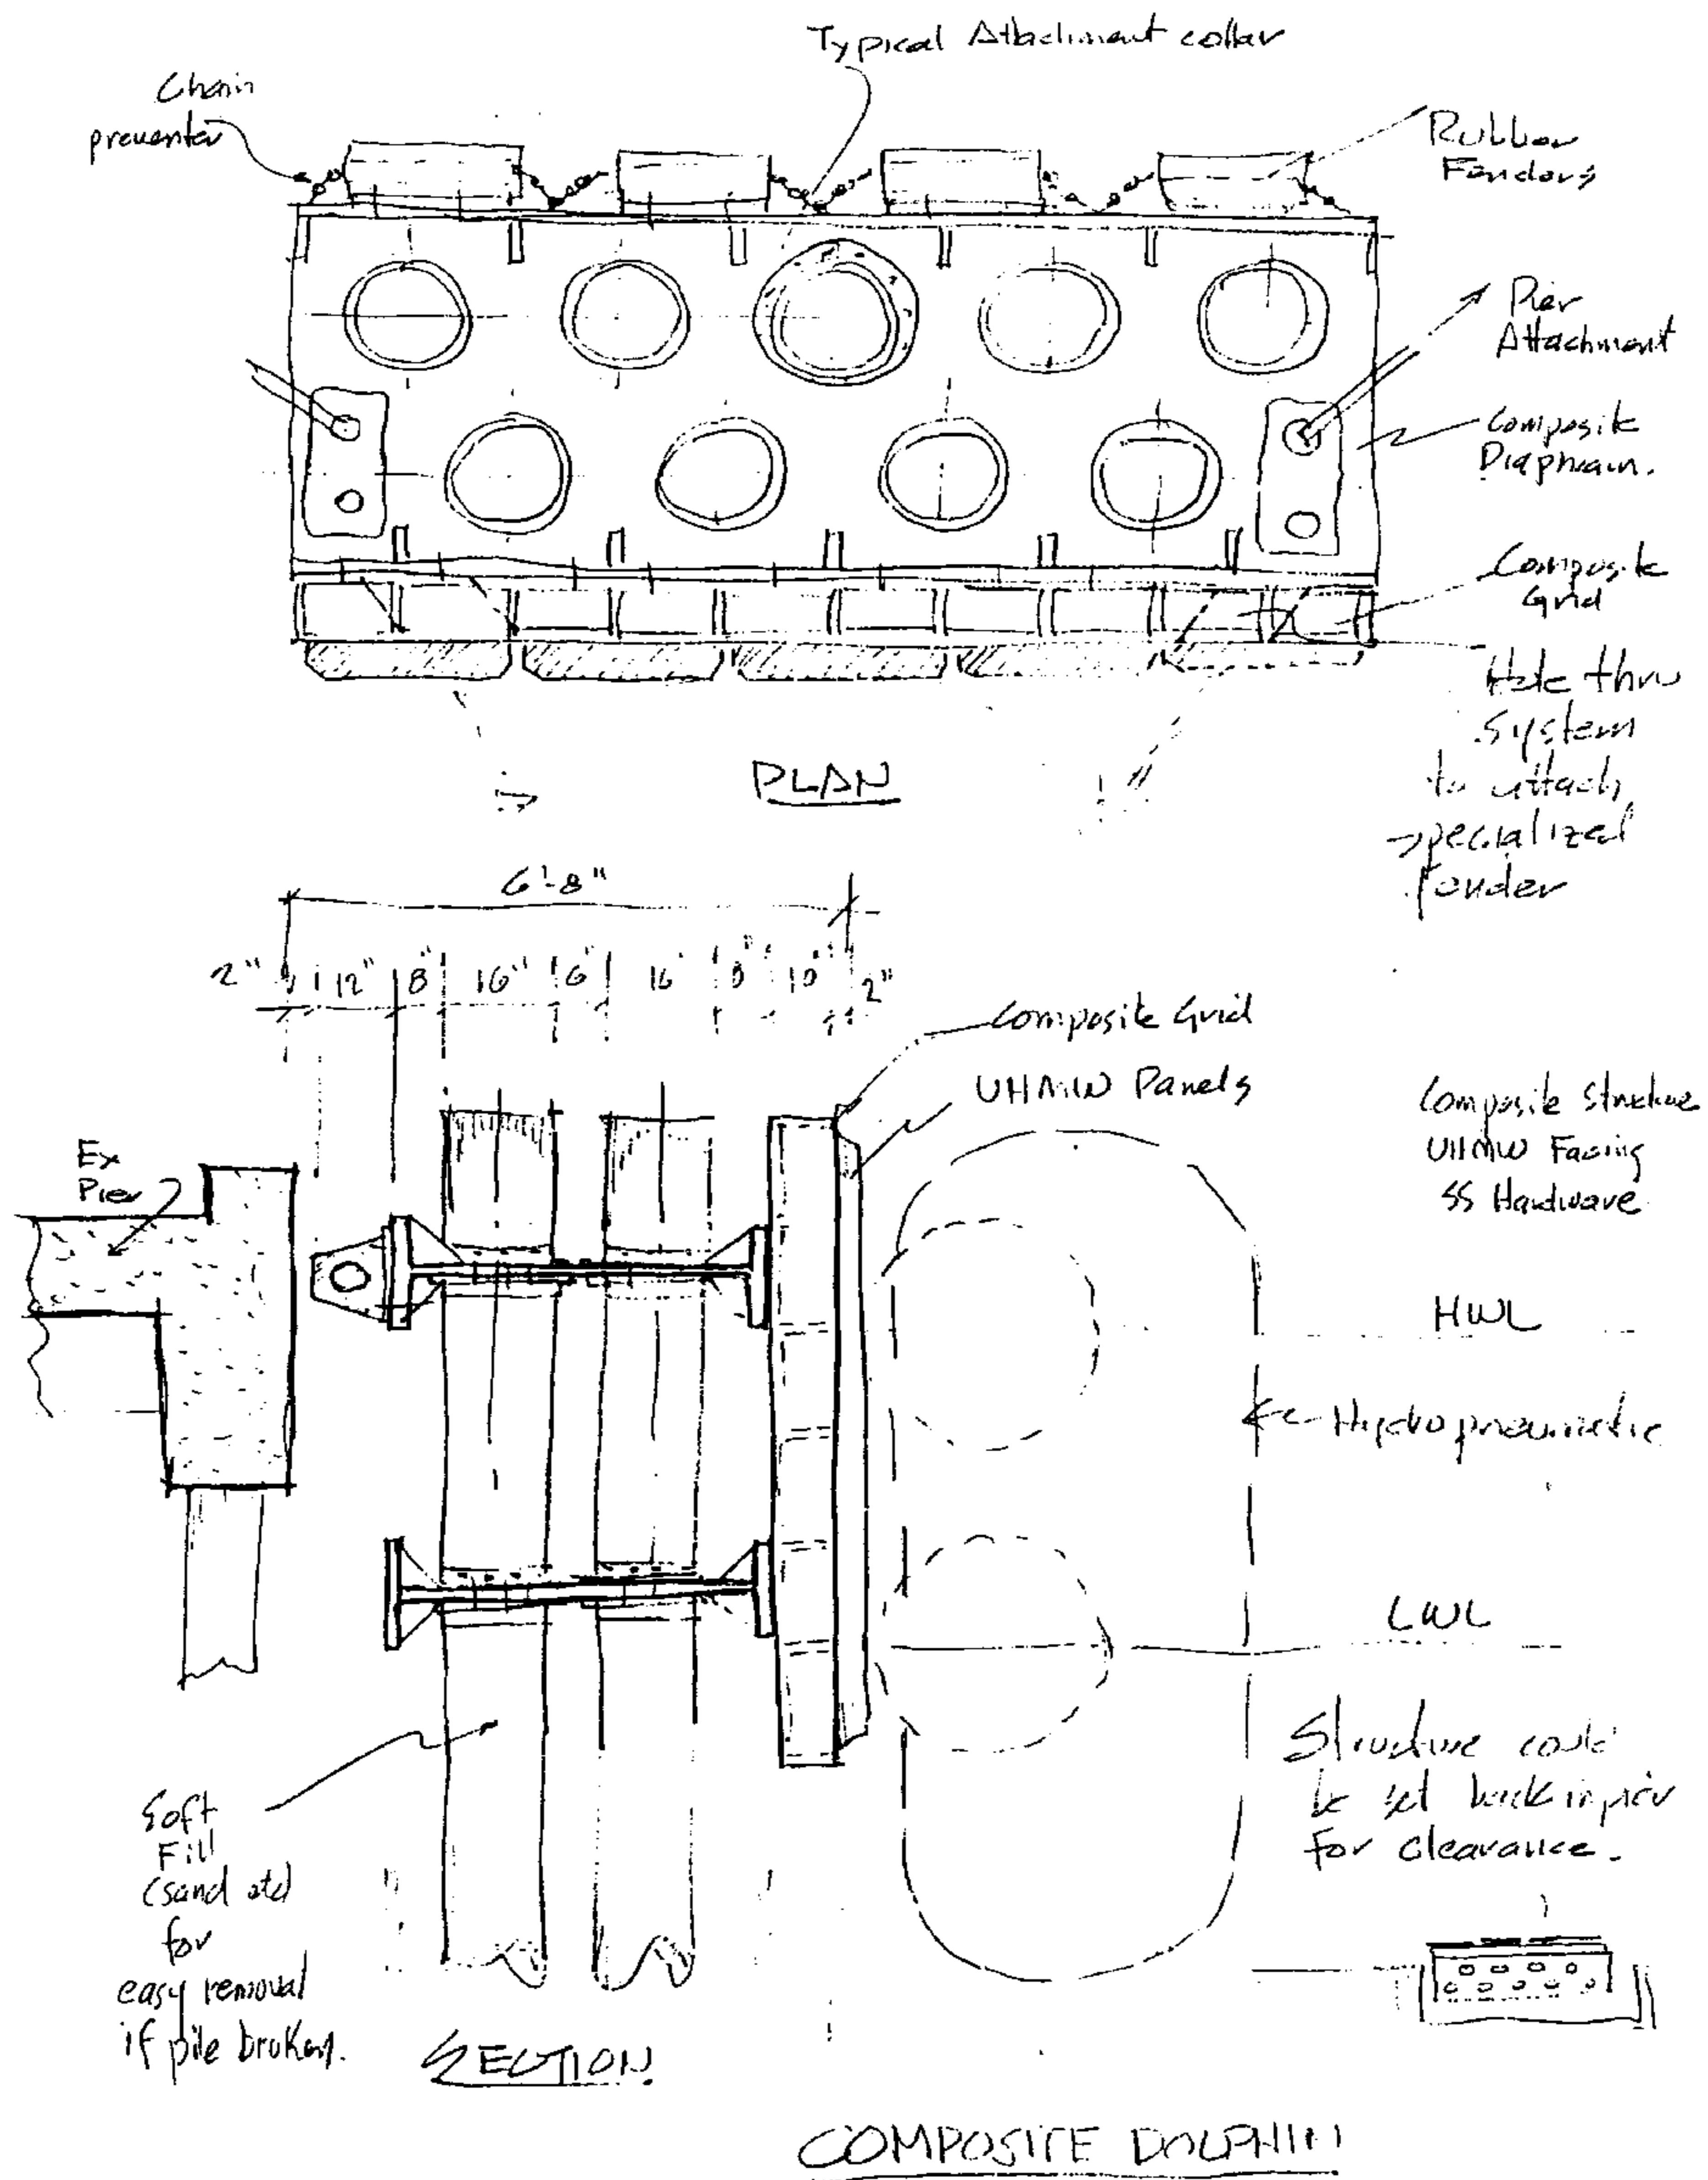 Typical Attachment collar
Chain
preventer
Rubber
Fenders
Pier
Attachment
Composite
Diaphram.
Composite
Grid
Hole thru
System
to attach
specialized
fender
PLAN
6'-8"
2" 12" 8" 16" 6" 16" 8" 10" 2"
Composite Grid
UHMW Panels
Composite Structure
UHMW Facing
SS Hardware
Ex
Pier
HWL
Hydropneumatic
LWL
Structure could
be set back in pier
for clearance.
Soft
Fill
(sand etc)
for
easy removal
if pile broken.
SECTION
COMPOSITE DOLPHIN